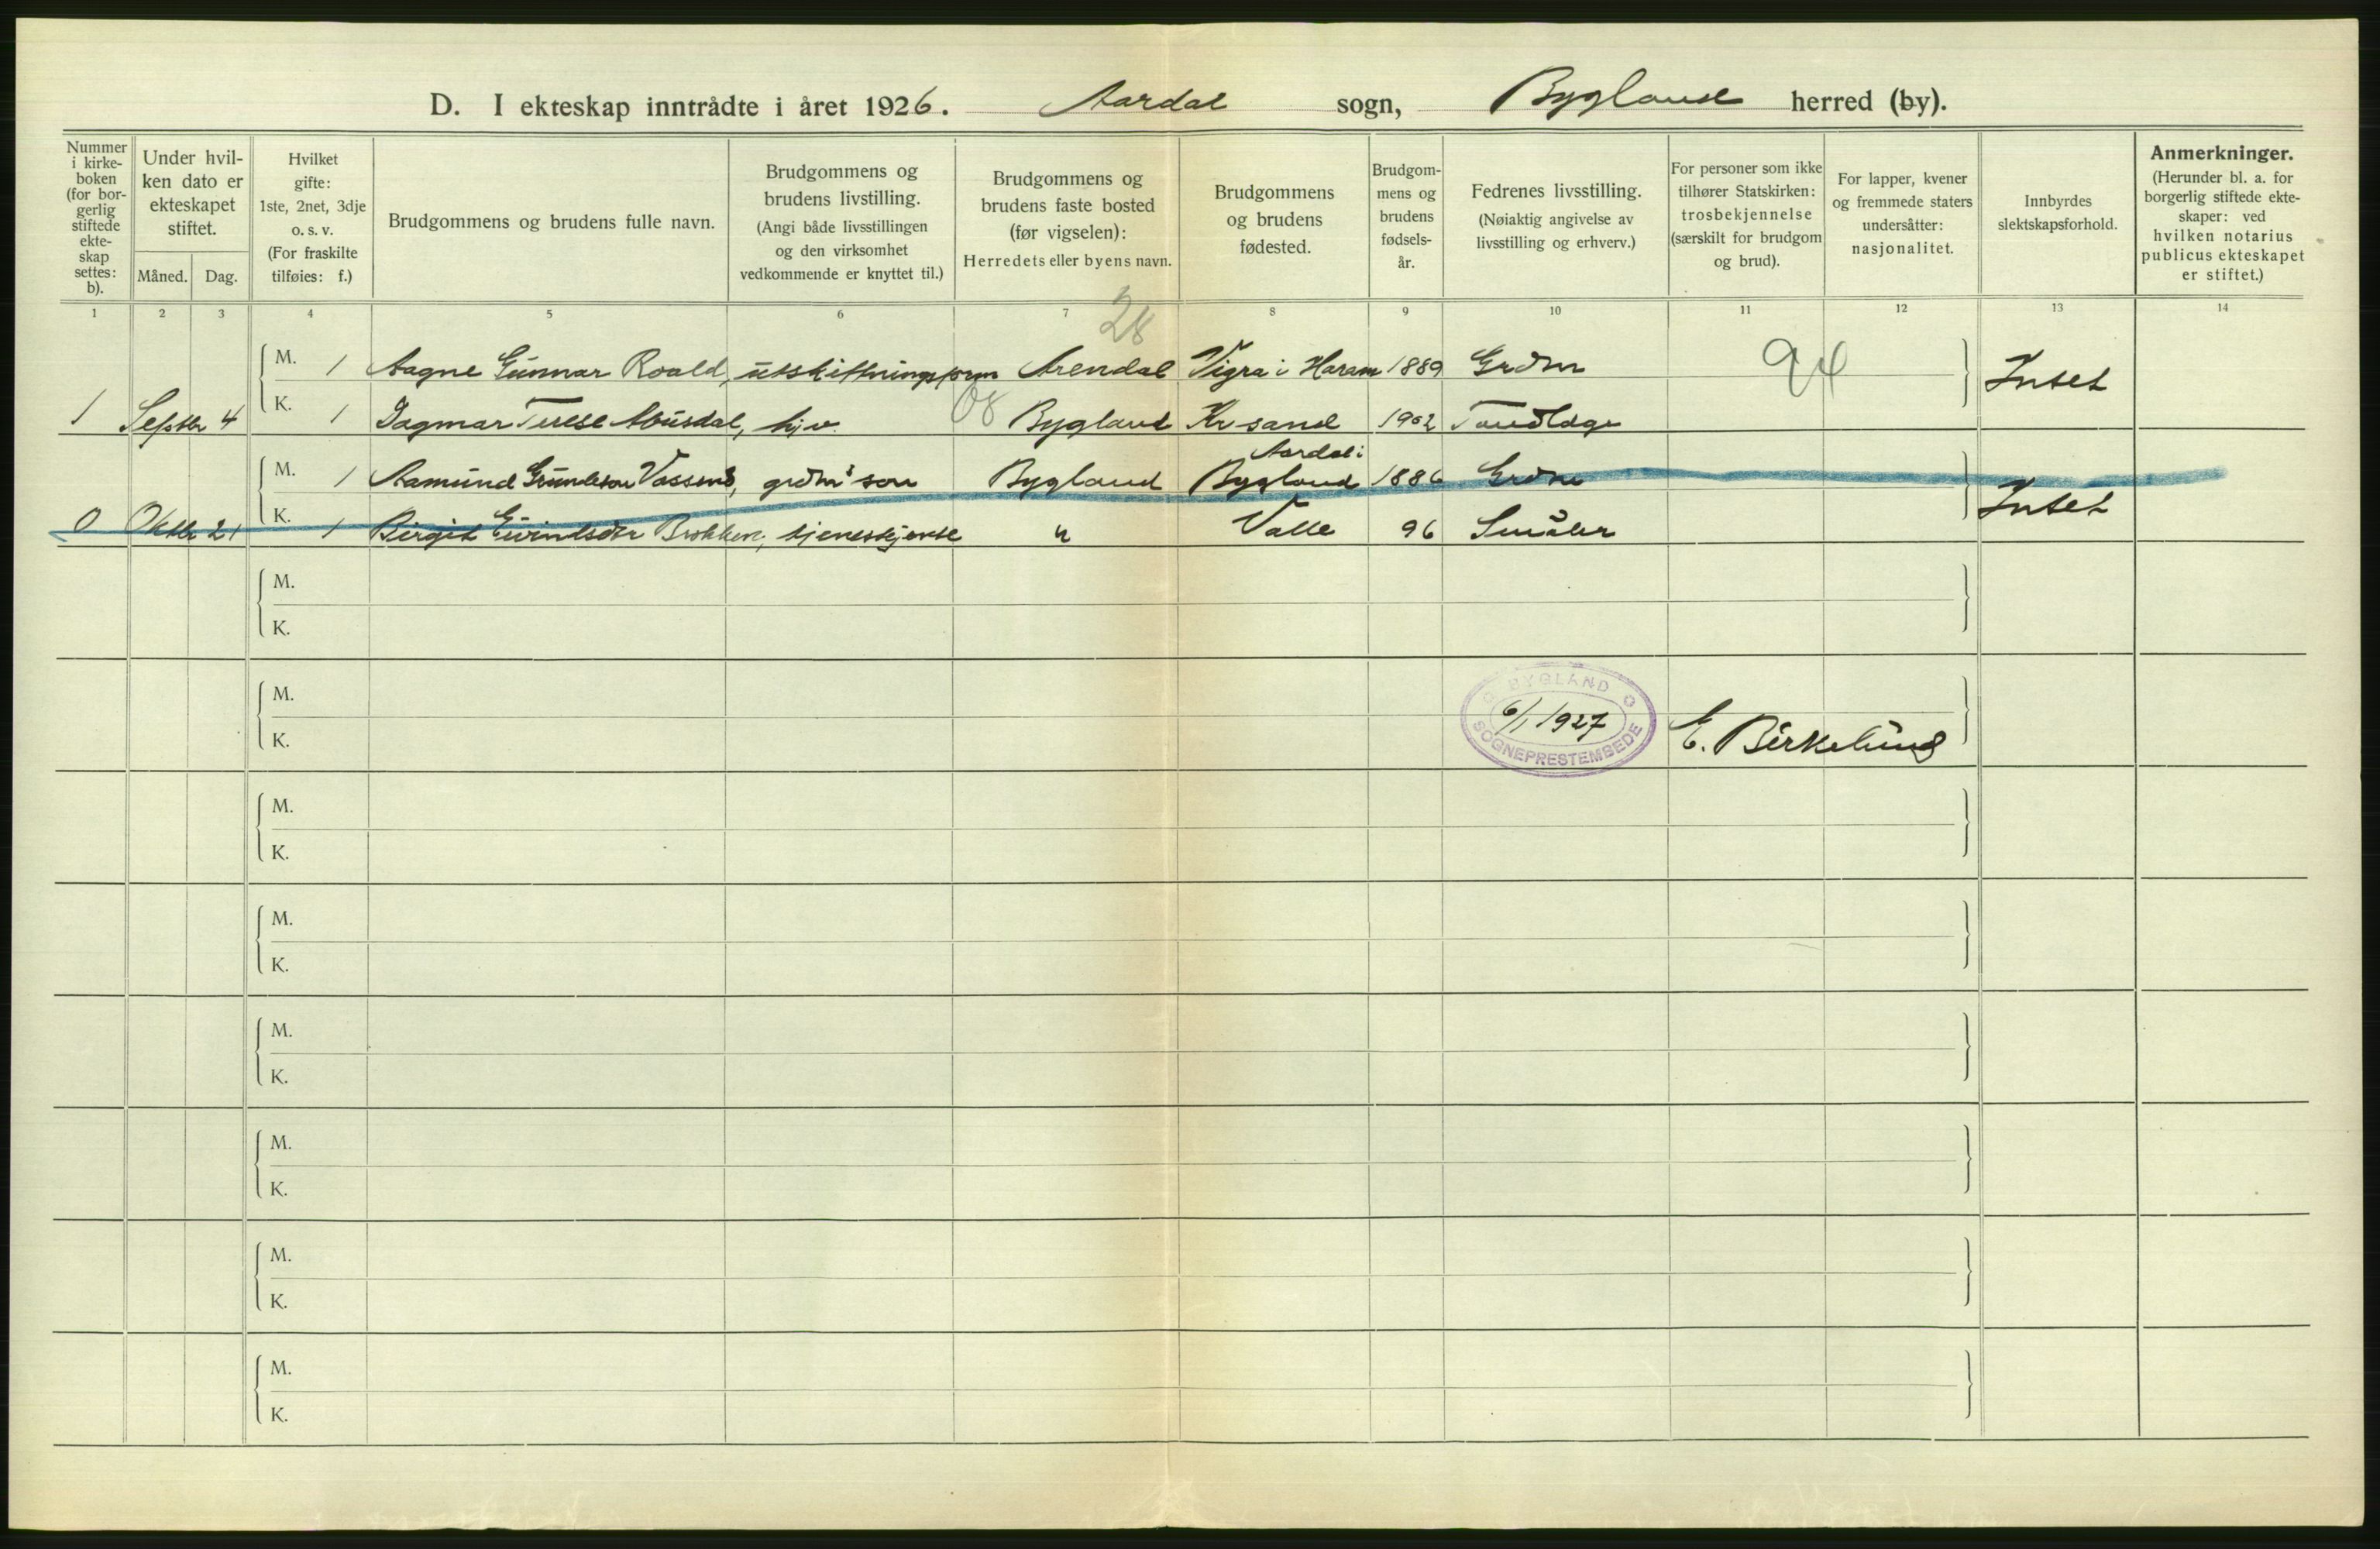 D. I ekteskap inntrådte i året 1926. Aardal sogn, Bygland herred (by).
Nummer i kirke- boken (for bor- gerlig stiftede ekte- skap settes: b).
Under hvil- ken dato er ekteskapet stiftet.
Måned. Dag.
Hvilket gifte: 1ste, 2net, 3dje o. s. v. (For fraskilte tilføies: f.)
Brudgommens og brudens fulle navn.
Brudgommens og brudens livstilling. (Angi både livsstillingen og den virksomhet vedkommende er knyttet til.)
Brudgommens og brudens faste bosted (før vigselen): Herredets eller byens navn.
Brudgommens og brudens fødested.
Brudgom- mens og brudens fødsels- år.
Fedrenes livsstilling. (Nøiaktig angivelse av livsstilling og erhverv.)
For personer som ikke tilhører Statskirken: trosbekjennelse (særskilt for brudgom og brud).
For lapper, kvener og fremmede staters undersåtter: nasjonalitet.
Innbyrdes slektskapsforhold.
Anmerkninger. (Herunder bl. a. for borgerlig stiftede ekte- skaper: ved hvilken notarius publicus ekteskapet er stiftet.)
1 2 3 4 5 6 7 8 9 10 11 12 13 14
28
M. 1 Aagne Gunnar Roald, Arendal Vigra i Haram 1889 Grdm 94 Intet
1 Septbr 4 K. 1 Dagmar Terese hjv. 08 Bygland Kr sand 1902
Aardal i
M. 1 Aamund Vassend, grdm's søn Bygland Bygland 1886 Grdm Intet
0 Oktbr 21 K. 1 Birgit Eivindsdtr Brokken, tjenestejente " Valle 96
M.
K.
M.
K.
BYGLAND
6/1 1927
SOGNEPRESTEMBEDE
E. Birkelund
M.
K.
M.
K.
M.
K.
M.
K.
M.
K.
M.
K.